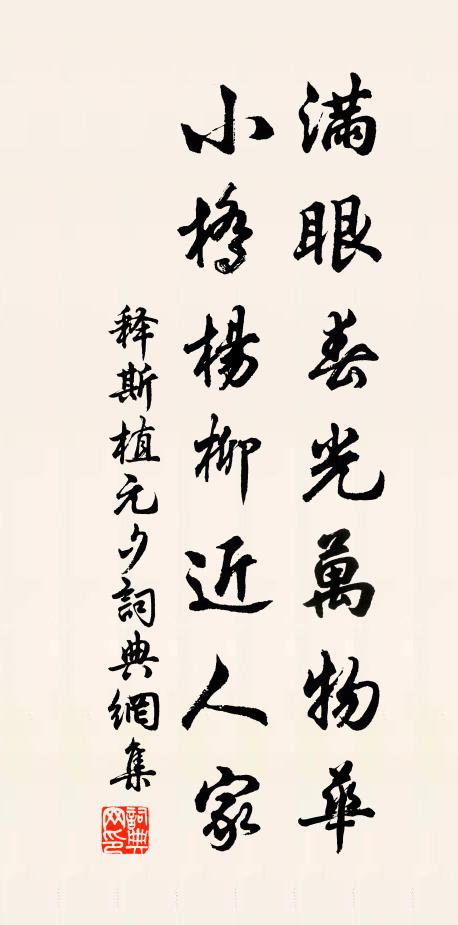 滿眼春光萬物華
小橋楊柳近人家
释斯植元夕詞典網集
詞典網印